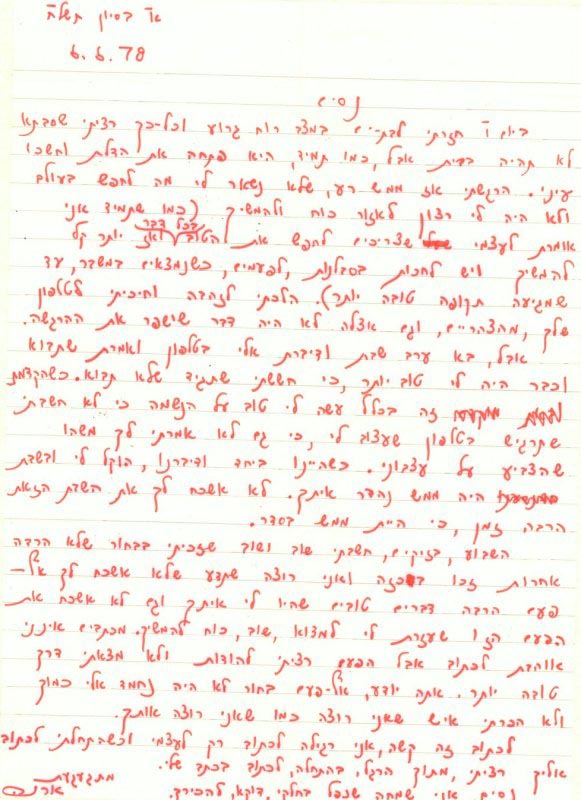 א' בסיון תשל"ח
6.6.78
נסים
ביום ו' חזרתי לבת-ים במצב רוח גרוע וכל-כך רציתי שסבתא
לא תהיה בבית אבל, כמו תמיד, היא פתחה את הדלת וחשכו
עיני. הרגשתי אז ממש רע, שלא נשאר לי מה לחפש בעולם
ולא היה לי רצון לאזור כוח ולהמשיך (כמו שתמיד אני
אומרת לעצמי שצריכים לחפש את הטוב בכל דבר ואז יותר קל
להמשיך ויש לחכות בסבלנות, לפעמים, כשנמצאים במשבר, עד
שמגיעה תקופה טובה יותר). הלכתי לזהבה וחיכיתי לטלפון
שלך, מהצהריים, וגם אצלה לא היה דבר שישפר את ההרגשה.
אבל, בא ערב שבת ודיברת אלי בטלפון ואמרת שתבוא
וכבר היה לי טוב יותר, כי חששתי שתגיד שלא תבוא. כשהקדמת
זה בכלל עשה לי טוב על הנשמה כי לא חשבתי
שתרגיש בטלפון שעצוב לי, כי גם לא אמרתי לך משהו
שהצביע על עצבוני. כשהיינו ביחד ודיברנו, הוקל לי ובשבת
היה ממש נהדר איתך. לא אשכח לך את השבת הזאת
הרבה זמן, כי היית ממש בסדר.
השבוע, בזיקים, חשבתי שוב ושוב שזכיתי בבחור שלא הרבה
אחרות זכו בכזה ואני רוצה שתדע שלא אשכח לך אף-
פעם הרבה דברים טובים שהיו לי איתך וגם לא אשכח את
הפעם הזו שעזרת לי למצוא, שוב, כוח להמשיך. מכתבים אינני
אוהבת לכתוב אבל הפעם רציתי להודות ולא מצאתי דרך
טובה יותר. אתה יודע, אף-פעם בחור לא היה נחמד אלי כמוך
ולא הכרתי איש שאני רוצה כמו שאני רוצה אותך.
לכתוב זה קשה, אני רגילה לכתוב רק לעצמי וכשבתחלתי לכתוב
אליך רציתי, מתוך הרגל, בהתחלה, לכתוב בכתב שלי.
נסים אני שמחה שנפל בחלקי, דוקא, להכירך.
מתגעגעת